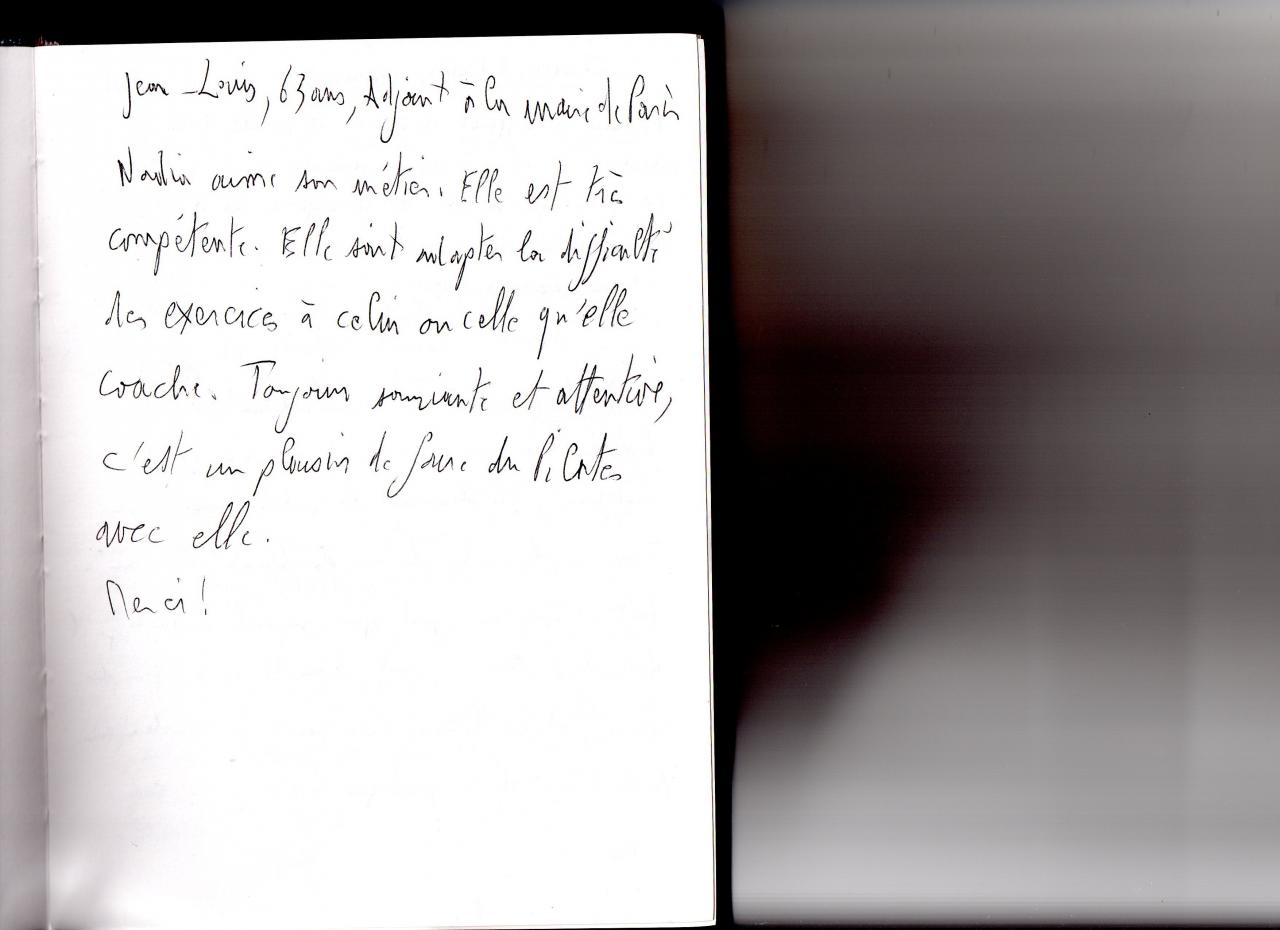 Jean-Louis, 63 ans, Adjoint à la maire de Paris
Nadia aime son métier. Elle est très
compétente. Elle sait adapter la difficulté
des exercices à celui ou celle qu'elle
coache. Toujours souriante et attentive,
c'est un plaisir de faire du Pilates
avec elle.
Merci !